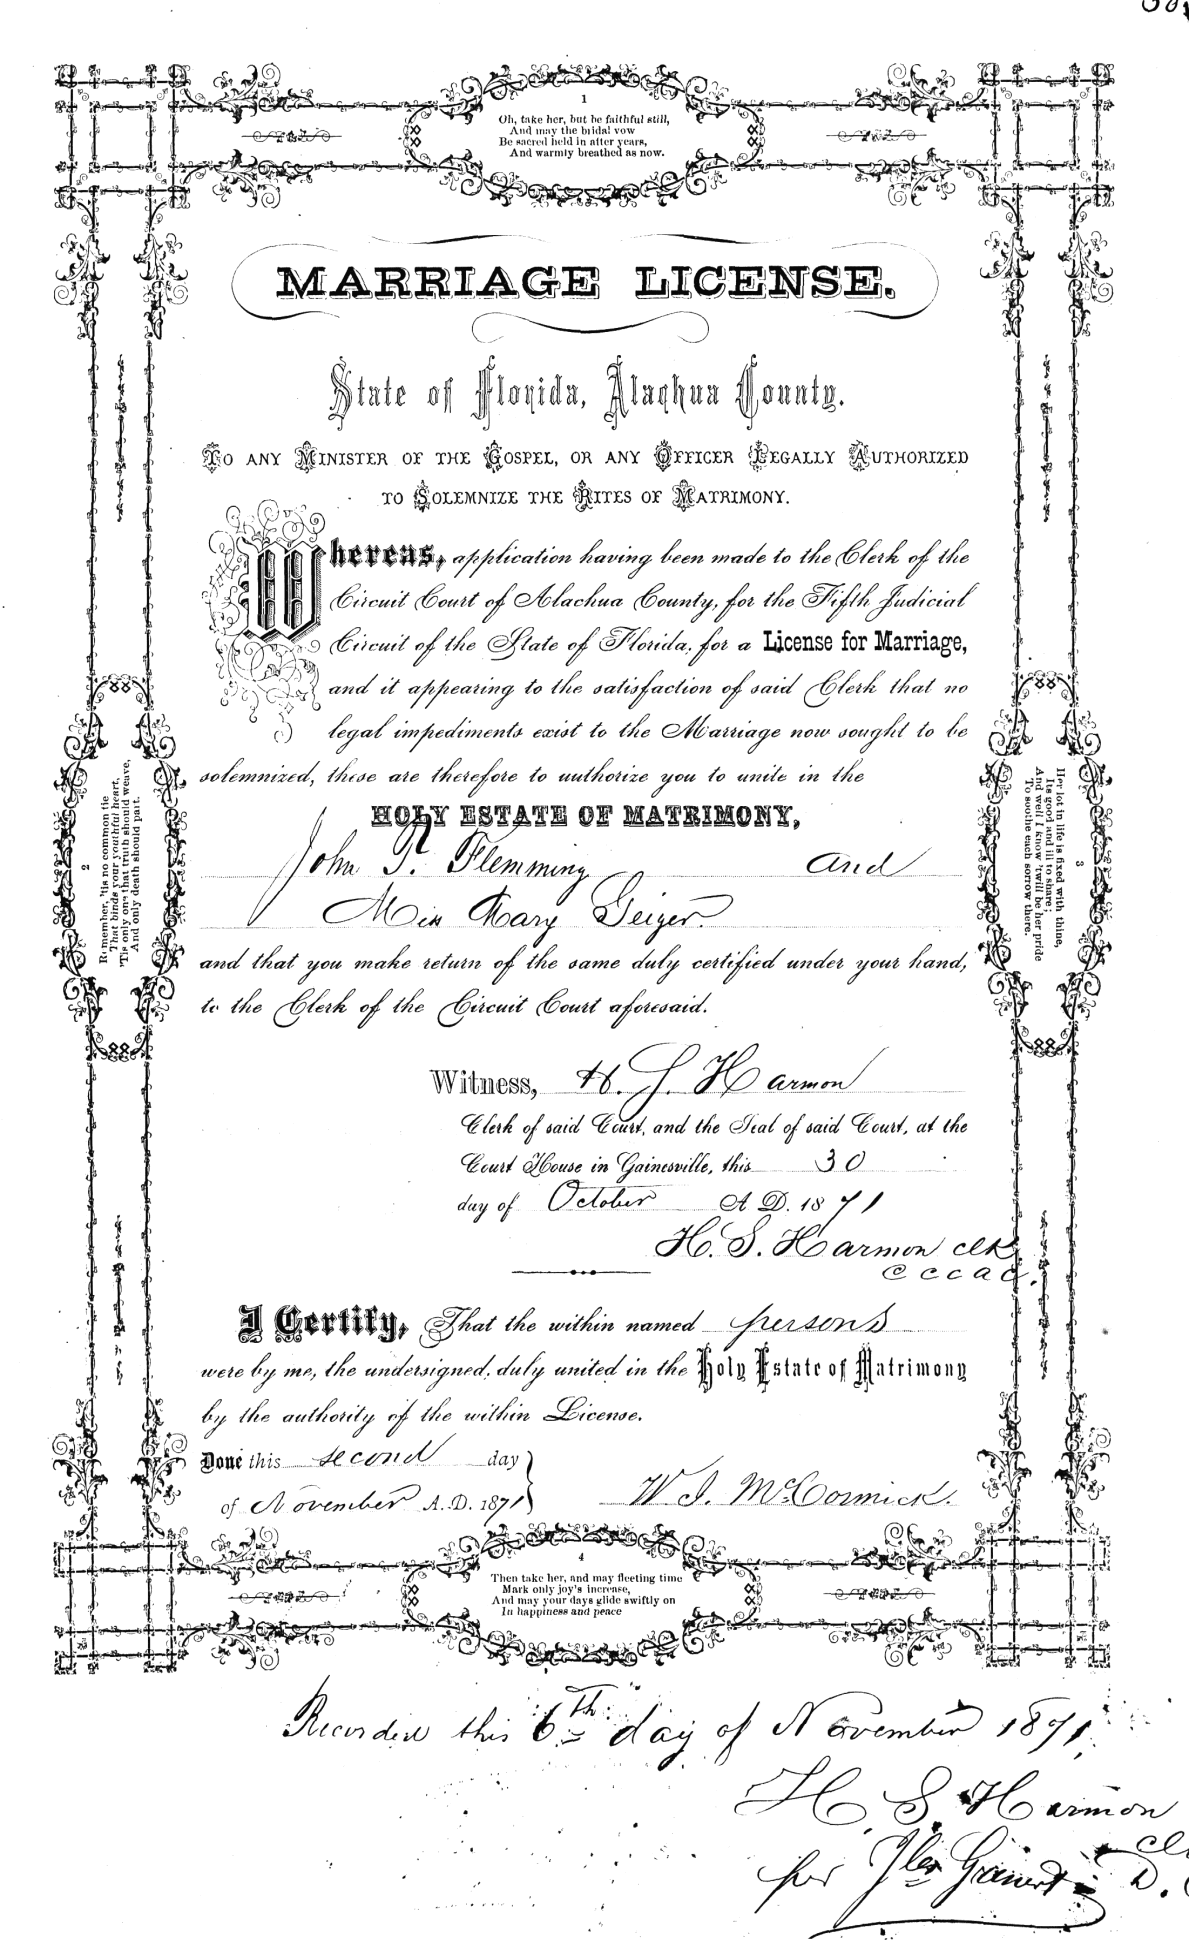 1
Oh, take her, but be faithful still,
And may the bridal vow
Be sacred held in after years,
And warmly breathed as now.
MARRIAGE LICENSE.
State of Florida, Alachua County.
TO ANY MINISTER OF THE GOSPEL, OR ANY OFFICER LEGALLY AUTHORIZED
TO SOLEMNIZE THE RITES OF MATRIMONY.
Whereas, application having been made to the Clerk of the
Circuit Court of Alachua County, for the Fifth Judicial
Circuit of the State of Florida, for a License for Marriage,
and it appearing to the satisfaction of said Clerk that no
legal impediments exist to the Marriage now sought to be
solemnized, these are therefore to authorize you to unite in the
HOLY ESTATE OF MATRIMONY,
John R. Flemming and
Miss Mary Geiger
and that you make return of the same duly certified under your hand,
to the Clerk of the Circuit Court aforesaid.
2
Remember, 'tis no common tie
That binds your youthful heart,
'Tis only one that truth should weave,
And only death should part.
3
Her lot in life is fixed with thine,
Its good and ill to share;
And well I know 'twill be her pride
To soothe each sorrow there.
Witness, H. S. Harmon
Clerk of said Court, and the Seal of said Court, at the
Court House in Gainesville, this 30
day of October A. D. 1871
H. S. Harmon clk
C C C A C.
I Certify, That the within named persons
were by me, the undersigned, duly united in the Holy Estate of Matrimony
by the authority of the within License.
Done this second day
of November A. D. 1871
W. J. McCormick.
4
Then take her, and may fleeting time
Mark only joy's increase,
And may your days glide swiftly on
In happiness and peace
Recorded this 6th day of November 1871,
H. S. Harmon
per
D.